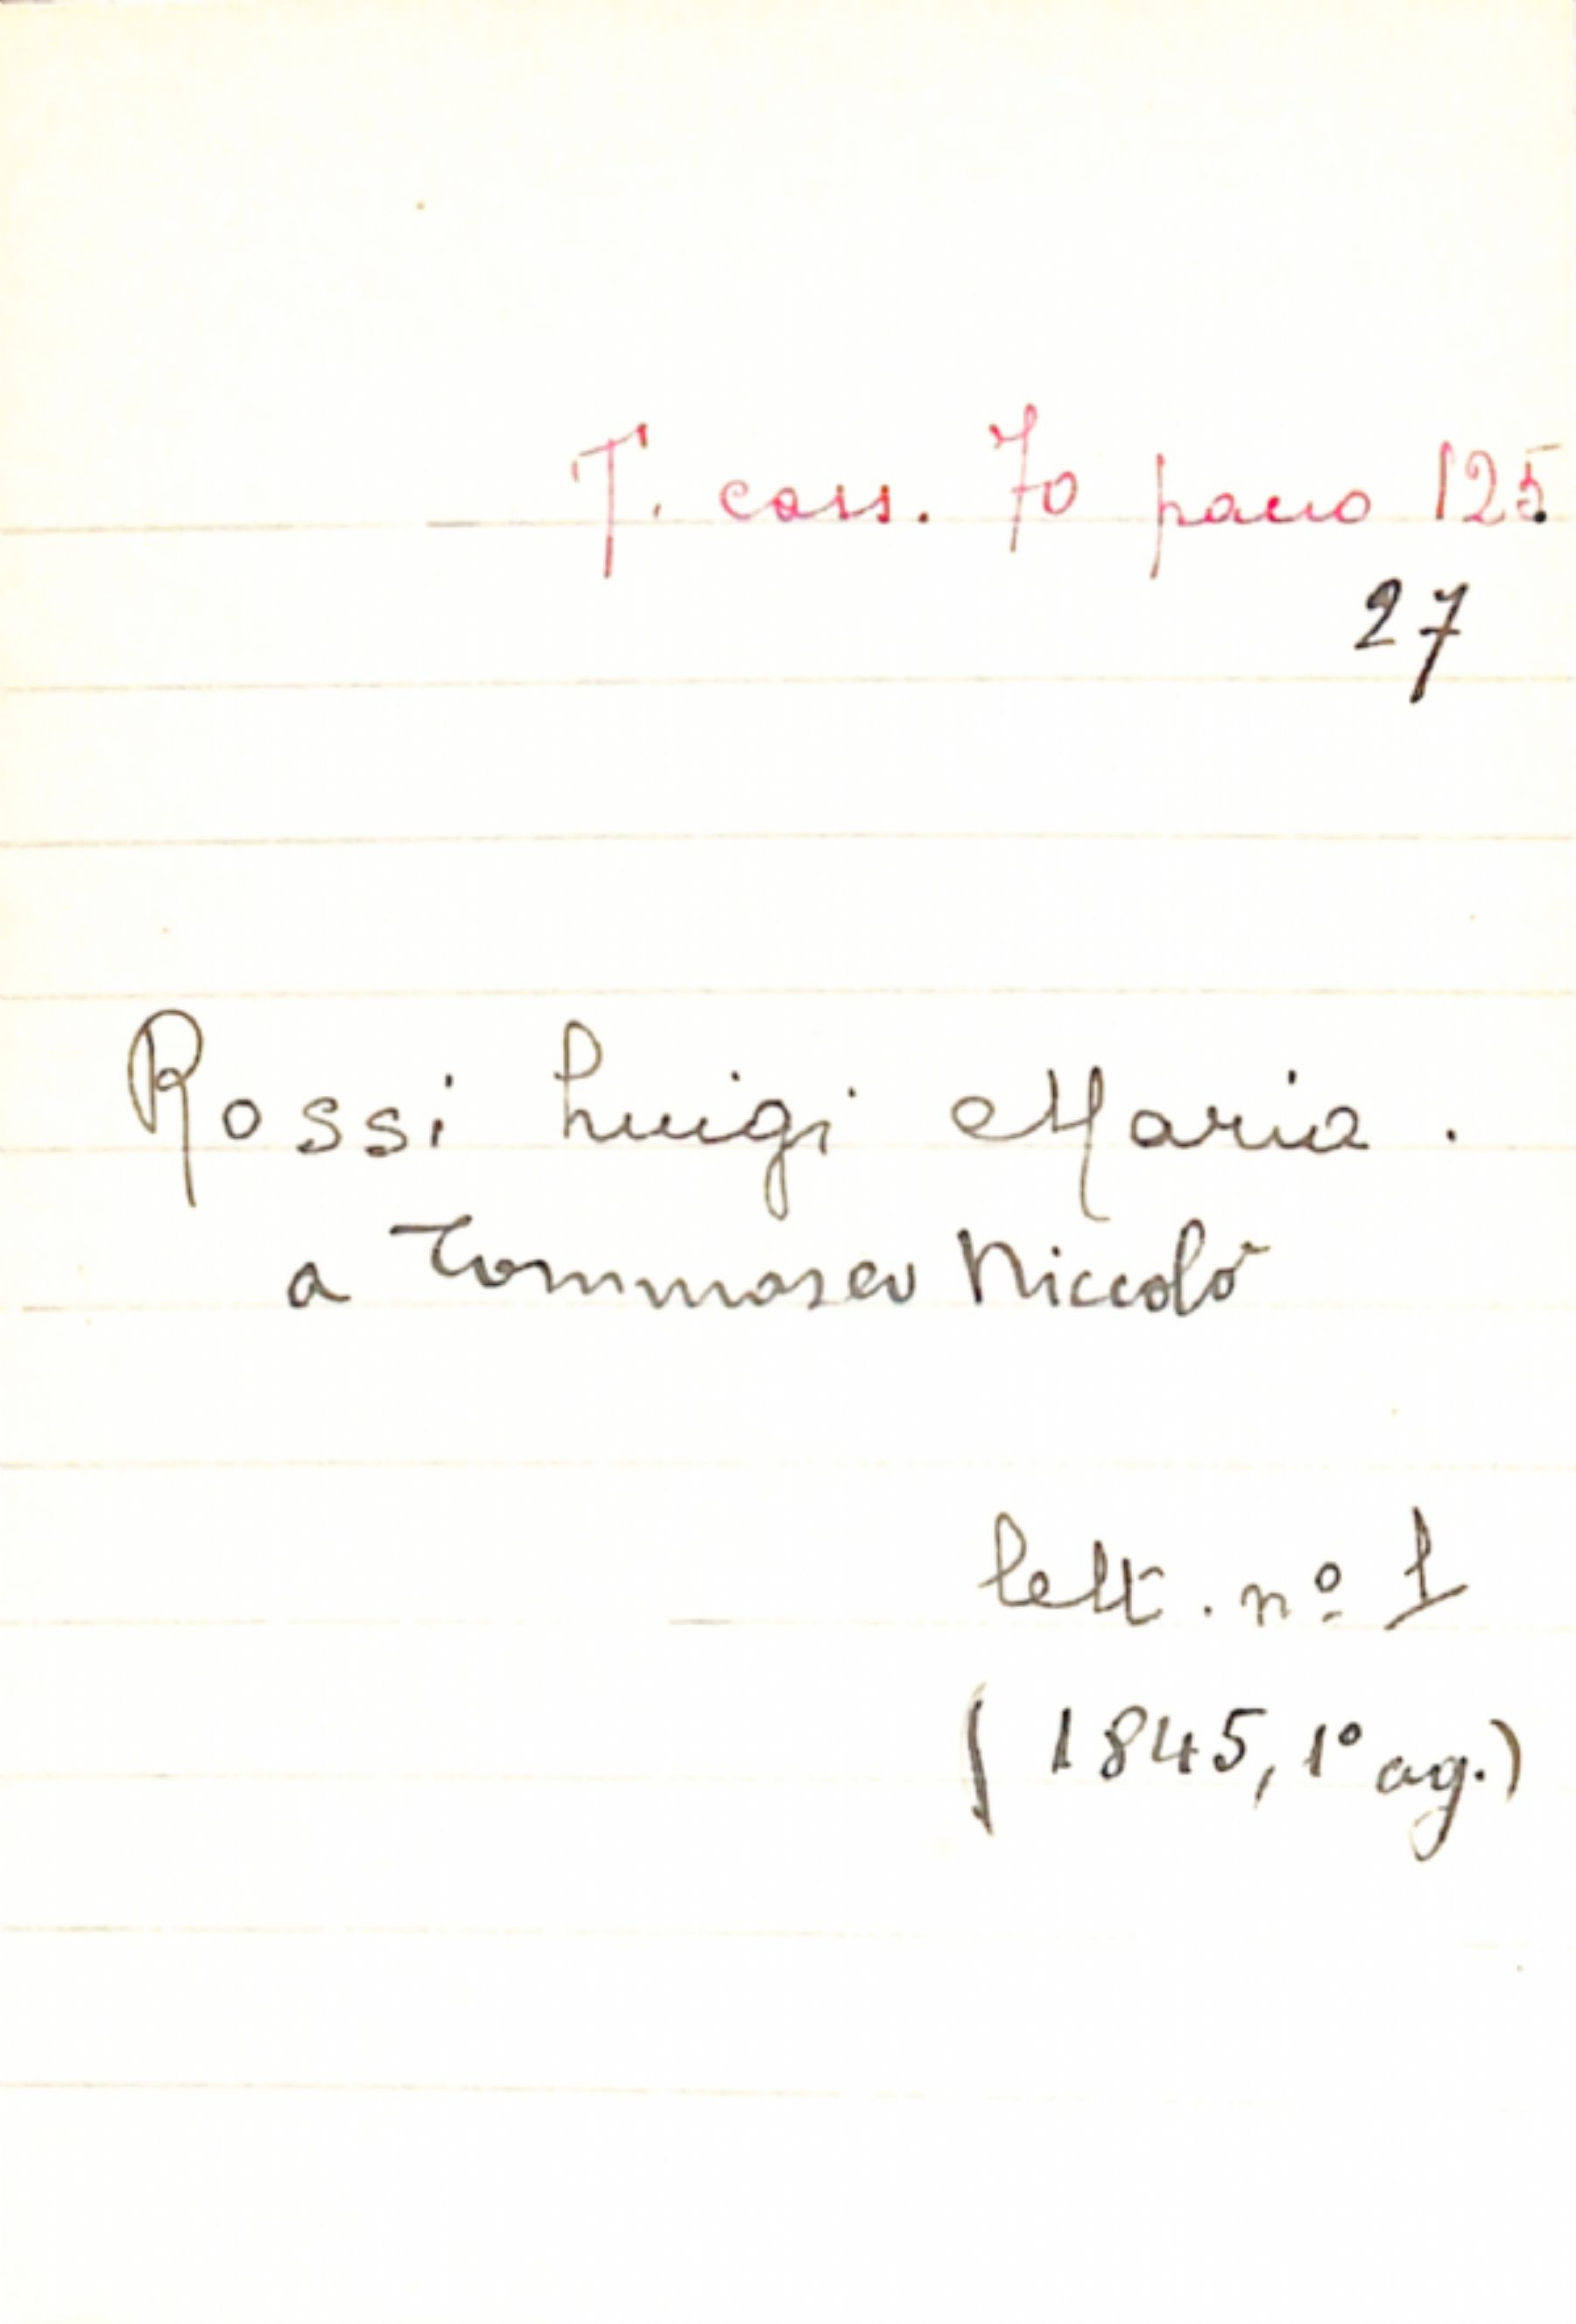 T. cass. 70 pacco 125.
27
Rossi Luigi Maria.
a Tommaseo Niccolò
lett. nº 1
(1845, 1º ag.)